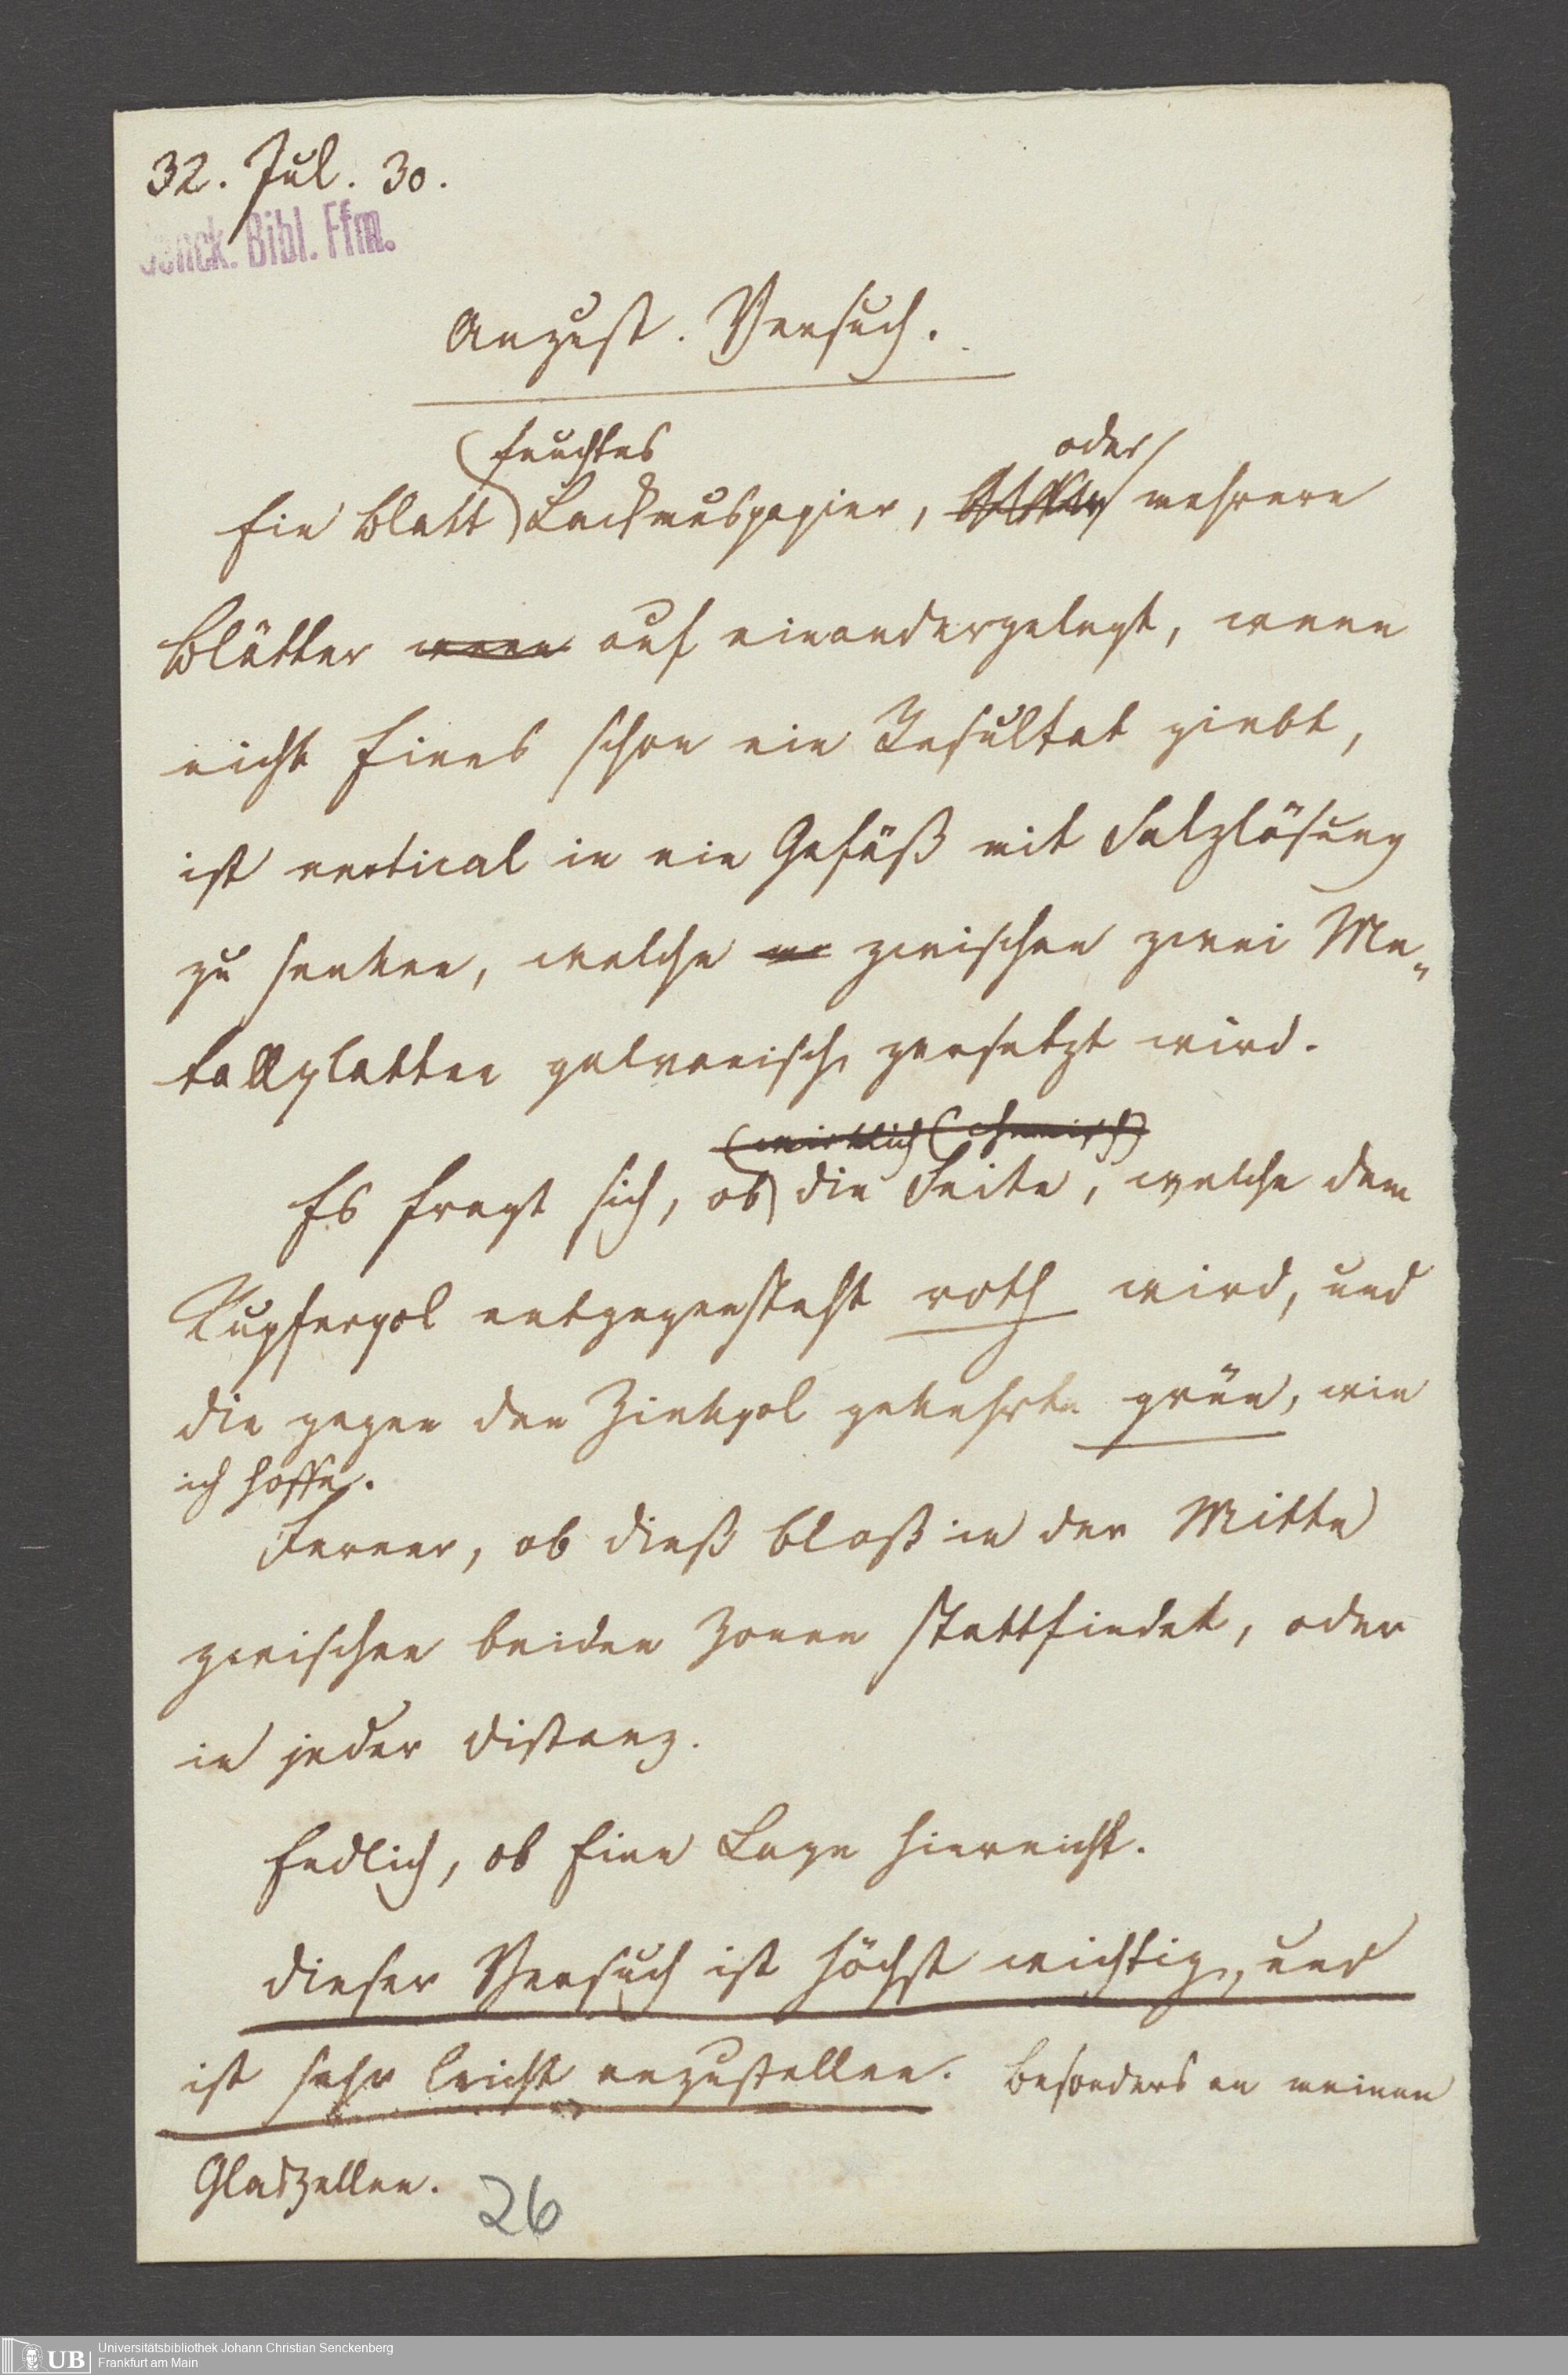 32. Jul. 30.
Senck. Bibl. Ffm.
Anzust. Versuch.
feuchtes
oder
Ein Blatt Lackmuspapier, mehrere
Blätter wenn auf einandergelegt, wenn
nicht Eines schon ein Resultat giebt,
ist vertical in ein Gefäß mit Salzlösung
zu senken, welche zwischen zwei Me-
tallplatten galvanisch zersetzt wird.
(wirklich (chemisch)
Es fragt sich, ob die Seite, welche dem
Kupferpol entgegensteht roth wird, und
die gegen den Zinkpol gekehrte grün, wie
ich hoffe.
Ferner, ob dieß bloß in der Mitte
zwischen beiden Zonen stattfindet, oder
in jeder Distanz.
Endlich, ob Eine Lage hinreicht.
Dieser Versuch ist höchst wichtig, und
ist sehr leicht anzustellen. Besonders an meinen
Glaszellen.
26
UB
Universitätsbibliothek Johann Christian Senckenberg
Frankfurt am Main